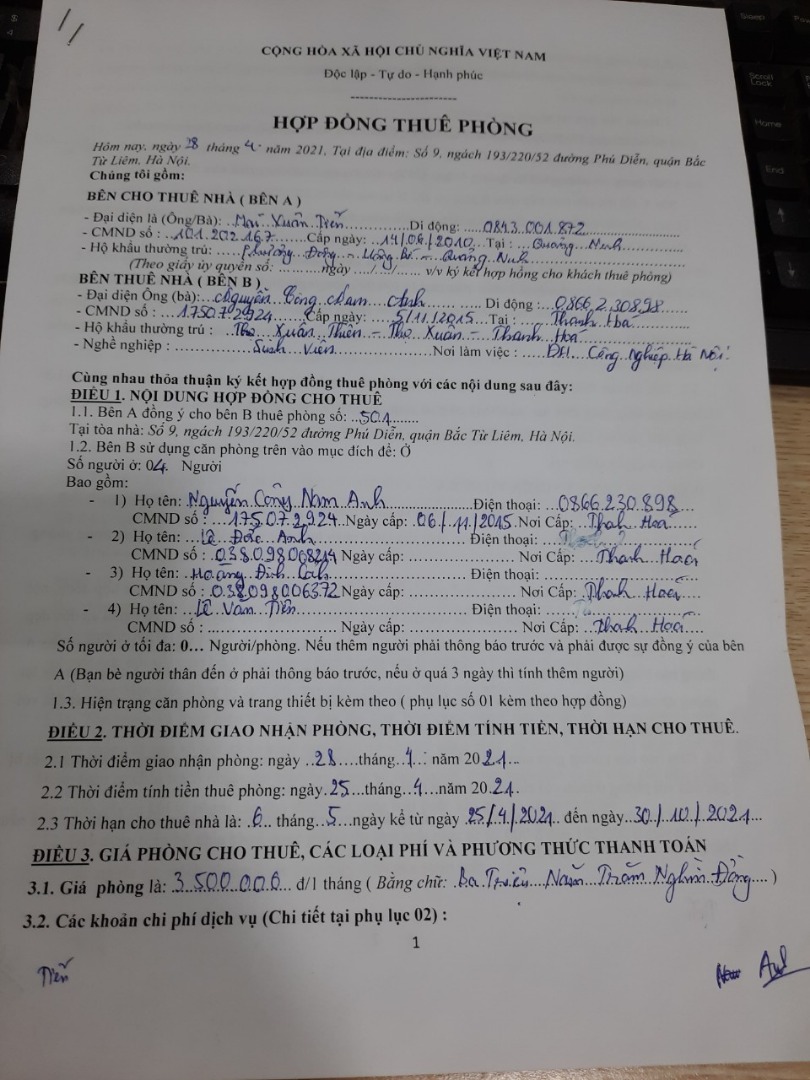 CỘNG HÒA XÃ HỘI CHỦ NGHĨA VIỆT NAM
Độc lập - Tự do - Hạnh phúc
HỢP ĐỒNG THUÊ PHÒNG
Hôm nay, ngày 28 tháng 4 năm 2021, Tại địa điểm: Số 9, ngách 193/220/52 đường Phú Diễn, quận Bắc
Từ Liêm, Hà Nội.
Chúng tôi gồm:
BÊN CHO THUÊ NHÀ ( BÊN A )
- Đại diện là (Ông/Bà): Mai Xuân Tiến Di động: 0843.001.872
- CMND số : 101.202.167 Cấp ngày: 14/06/2010 Tại : Quảng Ninh
- Hộ khẩu thường trú: Phương Đông - Uông Bí - Quảng Ninh
(Theo giấy ủy quyền số: ............ngày ..../..../...... v/v ký kết hợp hồng cho khách thuê phòng)
BÊN THUÊ NHÀ ( BÊN B )
- Đại diện Ông (bà): Nguyễn Công Nam Anh Di động : 0866.230.898
- CMND số : 175072924 Cấp ngày: 5/11/2015 Tại : Thanh Hoá
- Hộ khẩu thường trú : Thọ Xuân Thiên - Thọ Xuân - Thanh Hoá
- Nghề nghiệp : Sinh Viên Nơi làm việc : ĐH Công Nghiệp Hà Nội
Cùng nhau thỏa thuận ký kết hợp đồng thuê phòng với các nội dung sau đây:
ĐIỀU 1. NỘI DUNG HỢP ĐỒNG CHO THUÊ
1.1. Bên A đồng ý cho bên B thuê phòng số: 501
Tại tòa nhà: Số 9, ngách 193/220/52 đường Phú Diễn, quận Bắc Từ Liêm, Hà Nội.
1.2. Bên B sử dụng căn phòng trên vào mục đích để: Ở
Số người ở: 04 Người
Bao gồm:
- 1) Họ tên: Nguyễn Công Nam Anh Điện thoại: 0866.230.898
CMND số : 175.07.2.924 Ngày cấp: 06/11/2015 Nơi Cấp: Thah Hoá
- 2) Họ tên: Lê Đức Anh Điện thoại:
CMND số : 038098008214 Ngày cấp: Nơi Cấp: Thanh Hoá
- 3) Họ tên: Hoàng Đình Điện thoại:
CMND số : 038098006372 Ngày cấp: Nơi Cấp: Thah Hoá
- 4) Họ tên: Lê Văn Tiến Điện thoại:
CMND số : Ngày cấp: Nơi Cấp: Thah Hoá
Số người ở tối đa: 0… Người/phòng. Nếu thêm người phải thông báo trước và phải được sự đồng ý của bên
A (Bạn bè người thân đến ở phải thông báo trước, nếu ở quá 3 ngày thì tính thêm người)
1.3. Hiện trạng căn phòng và trang thiết bị kèm theo ( phụ lục số 01 kèm theo hợp đồng)
ĐIỀU 2. THỜI ĐIỂM GIAO NHẬN PHÒNG, THỜI ĐIỂM TÍNH TIỀN, THỜI HẠN CHO THUÊ.
2.1 Thời điểm giao nhận phòng: ngày 28 tháng 4 năm 2021
2.2 Thời điểm tính tiền thuê phòng: ngày 25 tháng 4 năm 2021.
2.3 Thời hạn cho thuê nhà là: 6 tháng 5 ngày kể từ ngày 25/4/2021 đến ngày 30/10/2021
ĐIỀU 3. GIÁ PHÒNG CHO THUÊ, CÁC LOẠI PHÍ VÀ PHƯƠNG THỨC THANH TOÁN
3.1. Giá phòng là: 3.500.000 đ/1 tháng ( Bằng chữ: Ba Triệu Năm Trăm Nghìn Đồng )
3.2. Các khoản chi phí dịch vụ (Chi tiết tại phụ lục 02) :
1
Tiến
Nam Anh